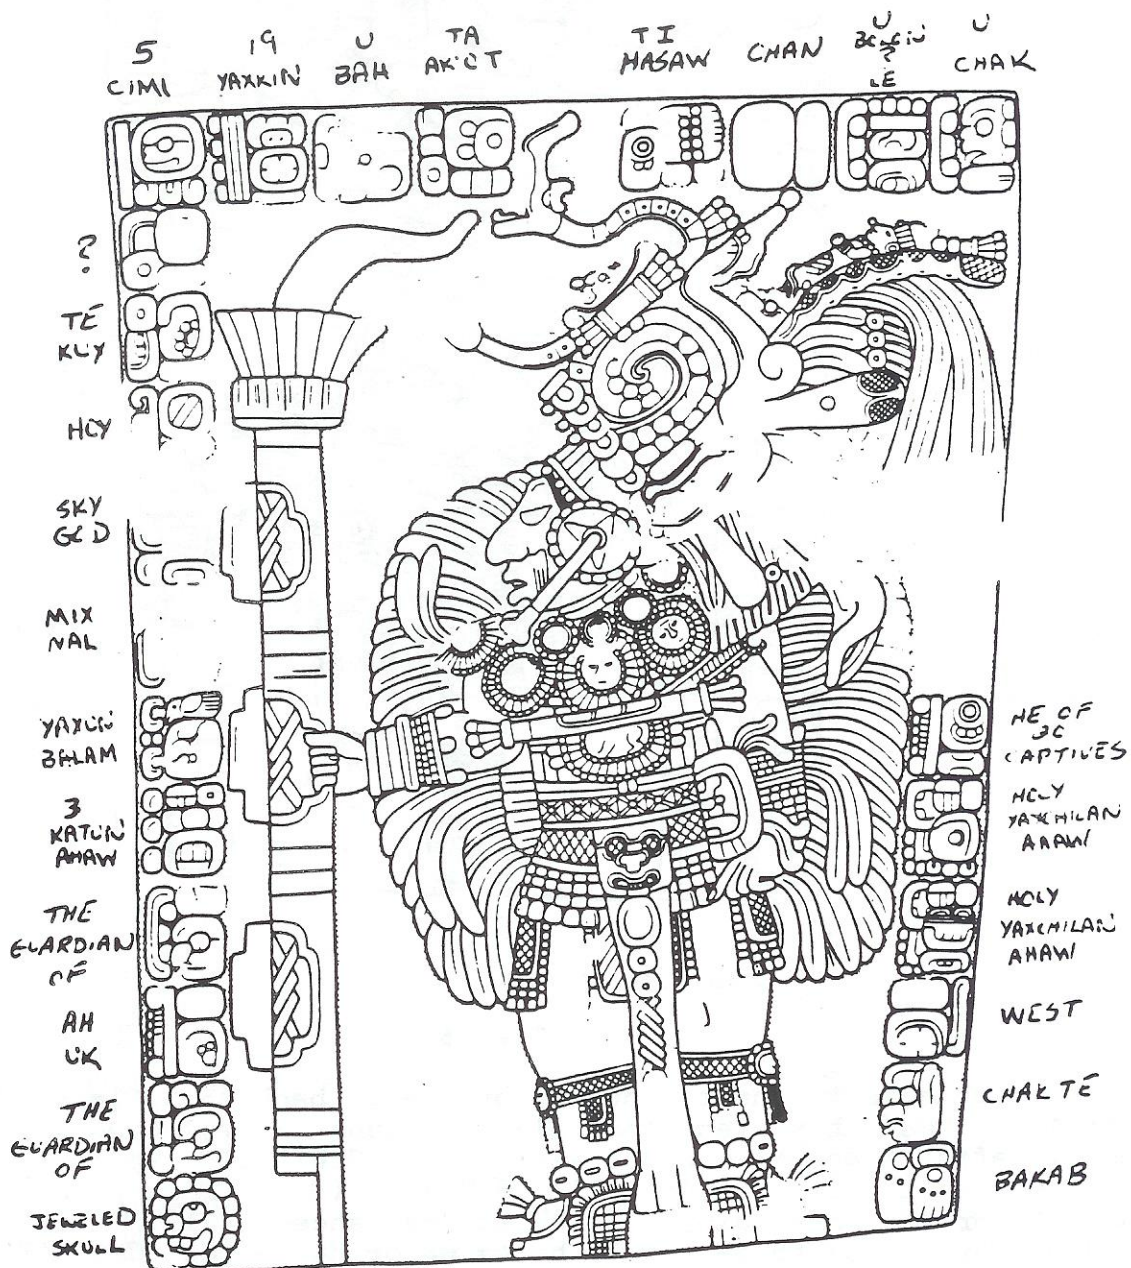 5
CIMI
19
YAXKIN
U
BAH
TA
AK'OT
TI
HASAW
CHAN
U
?
LE
U
CHAK
?
TE
KUY
HOY
SKY
GOD
MIX
NAL
YAXUN
BALAM
3
KATUN
AHAW
THE
GUARDIAN
OF
AH
UK
THE
GUARDIAN
OF
JEWELED
SKULL
HE OF
20
CAPTIVES
HOLY
YAXCHILAN
AHAW
HOLY
YAXCHILAN
AHAW
WEST
CHAK TE
BAKAB